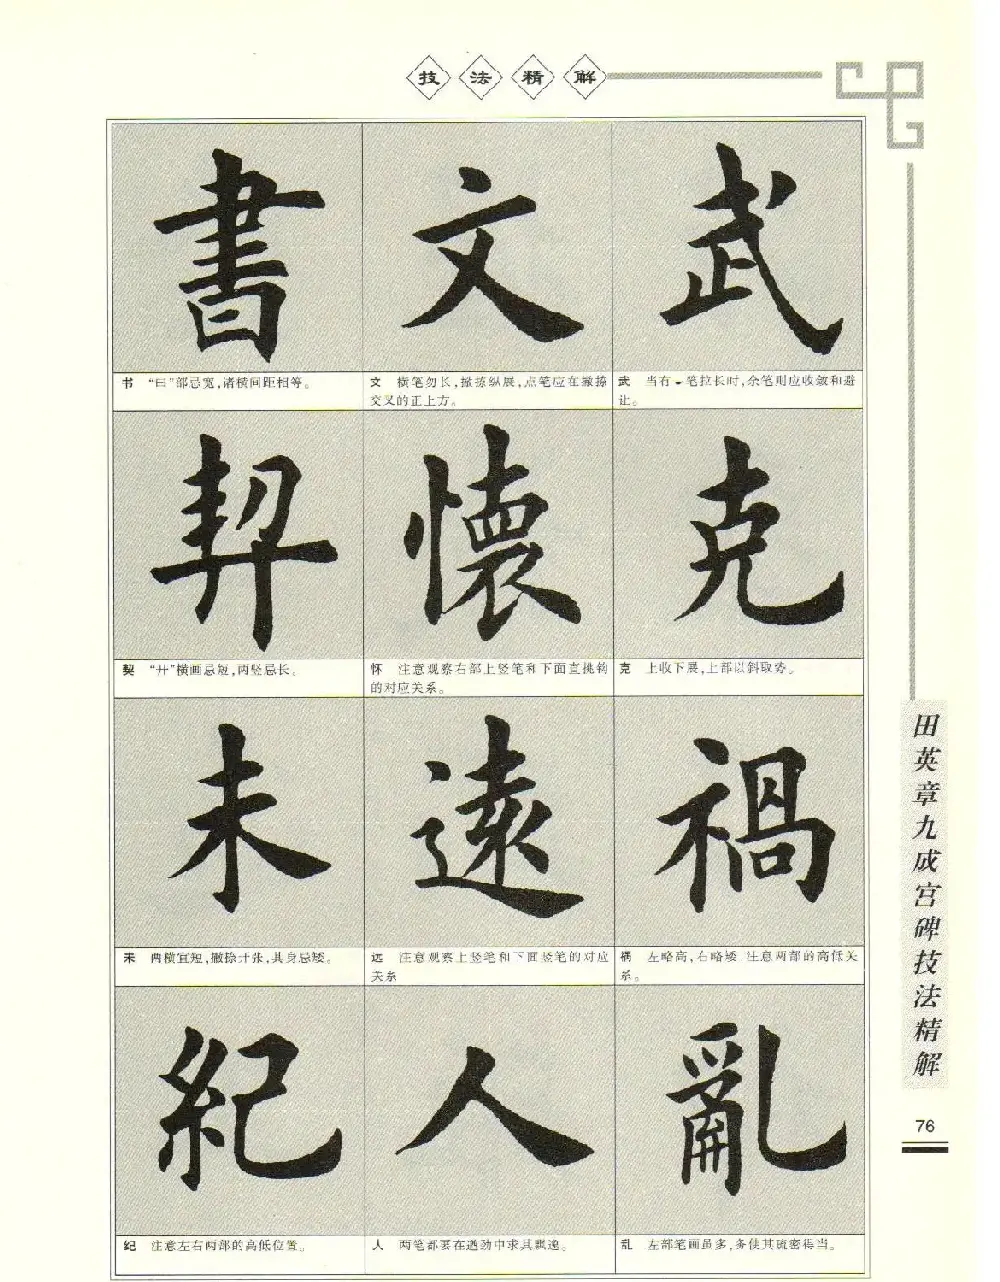 技法精解
書 文 武
书 “曰”部忌宽，诸横间距相等。
文 横笔勿长，撇捺纵展，点笔应在撇捺
交叉的正上方。
武 当有一笔拉长时，余笔则应收敛和避
让。
契 懷 克
契 “廾”横画忌短，两竖忌长。
怀 注意观察右部上竖笔和下面直挑钩
的对应关系。
克 上收下展，上部以斜取势。
未 遠 禍
未 两横宜短，撇捺开张，其身忌矮。
远 注意观察上竖笔和下面竖笔的对应
关系
祸 左略高，右略矮 注意两部的高低关
系。
紀 人 亂
纪 注意左右两部的高低位置。
人 两笔都要在遒劲中求其飘逸。
乱 左部笔画虽多，务使其疏密得当。
田英章九成宫碑技法精解
76